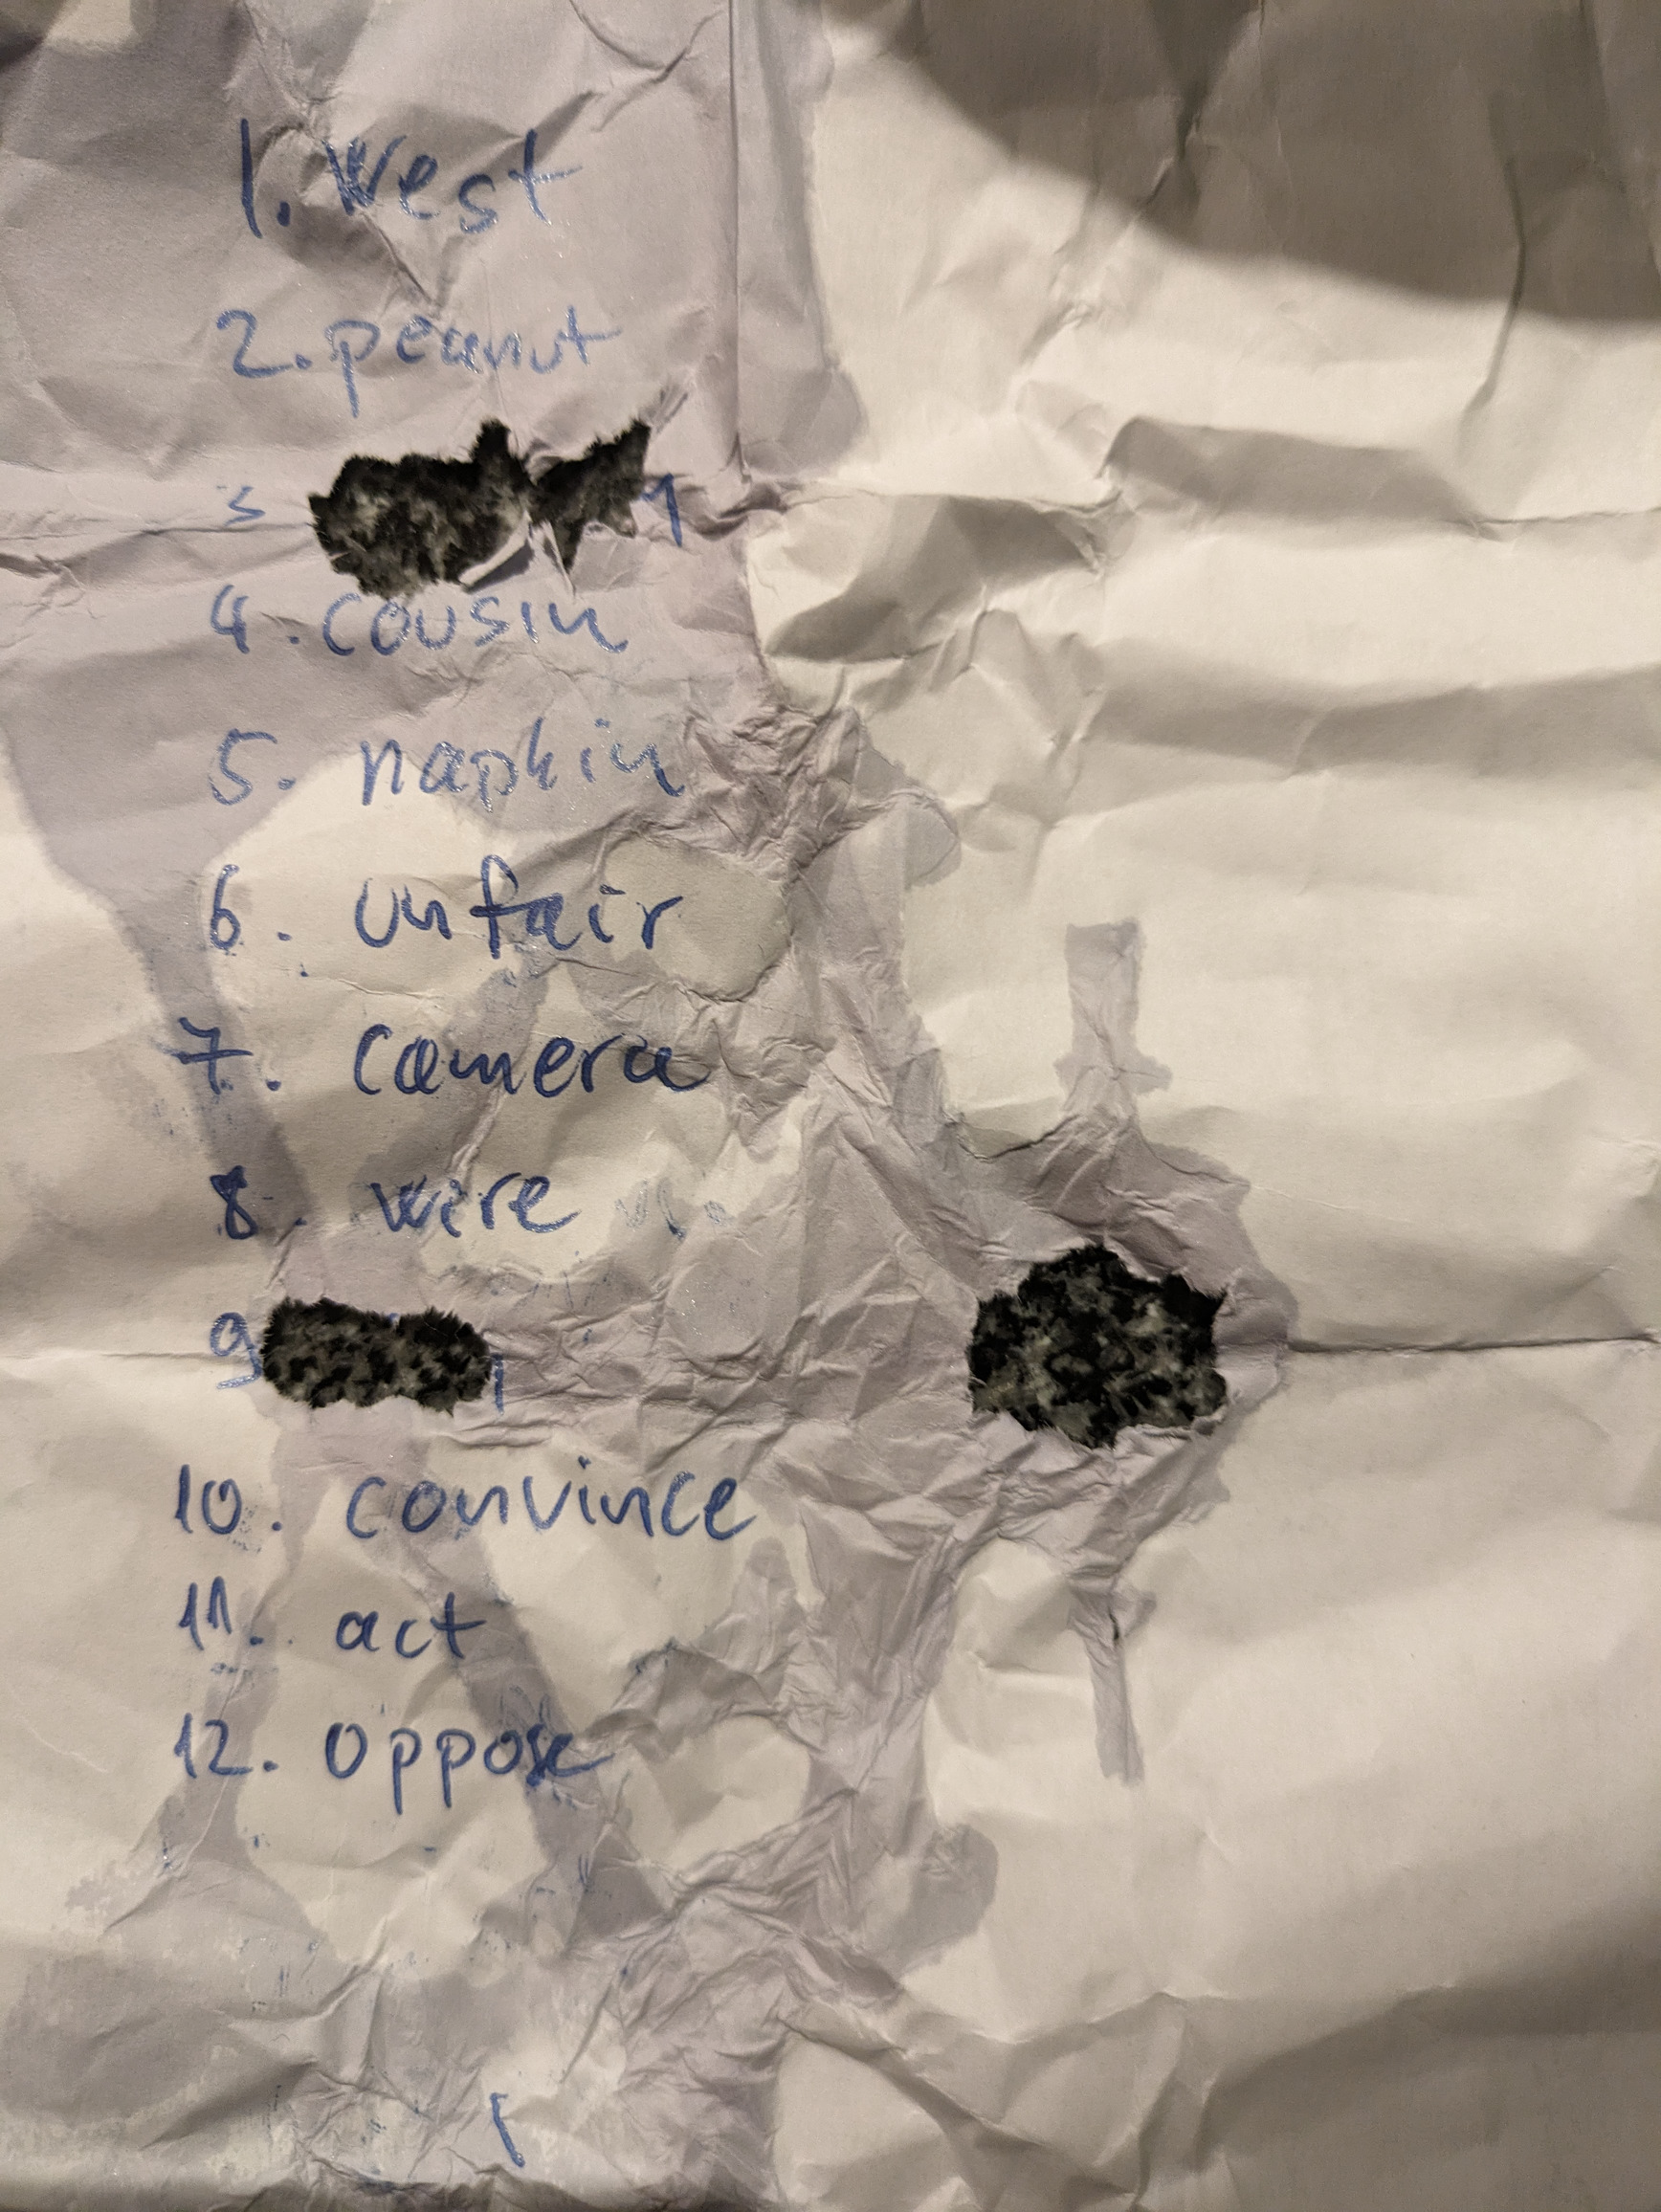 1. West
2. peanut
3
4. cousin
5. napkin
6. unfair
7. camera
8. wire
9
10. convince
11. act
12. oppose